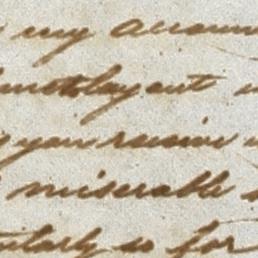 my accoun
lay out
you receive
miserable
ularly so for